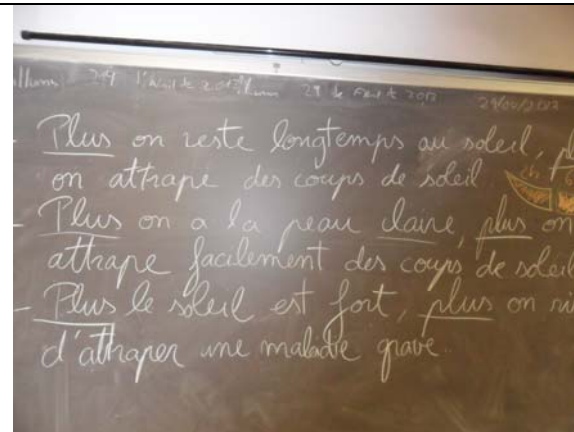 29
- Plus on reste longtemps au soleil, pl
on attrape des coups de soleil.
- Plus on a la peau claire, plus on
attrape facilement des coups de soleil
- Plus le soleil est fort, plus on ri
d'attraper une maladie grave.